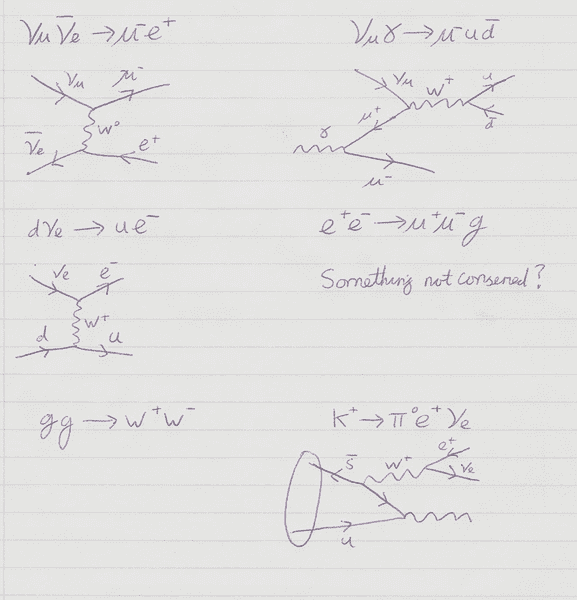 νμ ν̄e → μ⁻ e⁺
νμ
μ⁻
W⁰
ν̄e
e⁺
νμ γ → μ⁻ u d̄
νμ
W⁺
u
μ⁺
d̄
γ
μ⁻
dνe → u e⁻
νe
e⁻
W⁺
d
u
e⁺e⁻ → μ⁺μ⁻g
Something not conserved?
gg → W⁺W⁻
K⁺ → π⁰ e⁺ νe
s̄
W⁺
e⁺
νe
u